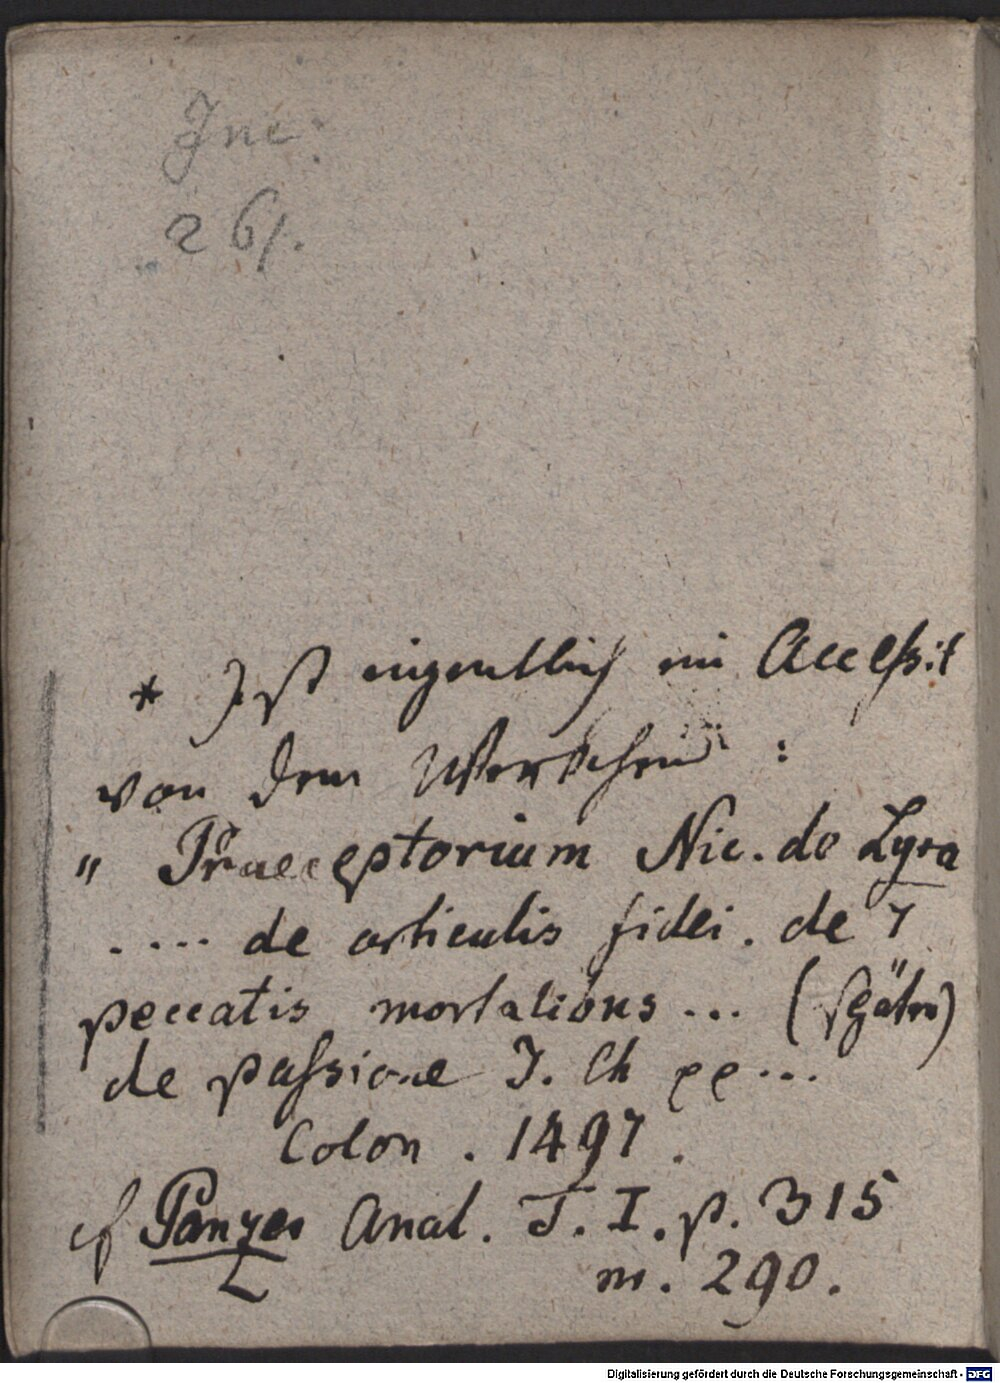 Inc.
261.
* Ist eigentlich ein Accessit
von dem Werkchen :
„ Praeceptorium Nic. de Lyra
.... de articulis fidei. de 7
peccatis mortalibus ... (später)
de passione J. Ch pp ...
Colon. 1497.
cf Panzer Anal. T. I. p. 315
n. 290.
Digitalisierung gefördert durch die Deutsche Forschungsgemeinschaft - DFG